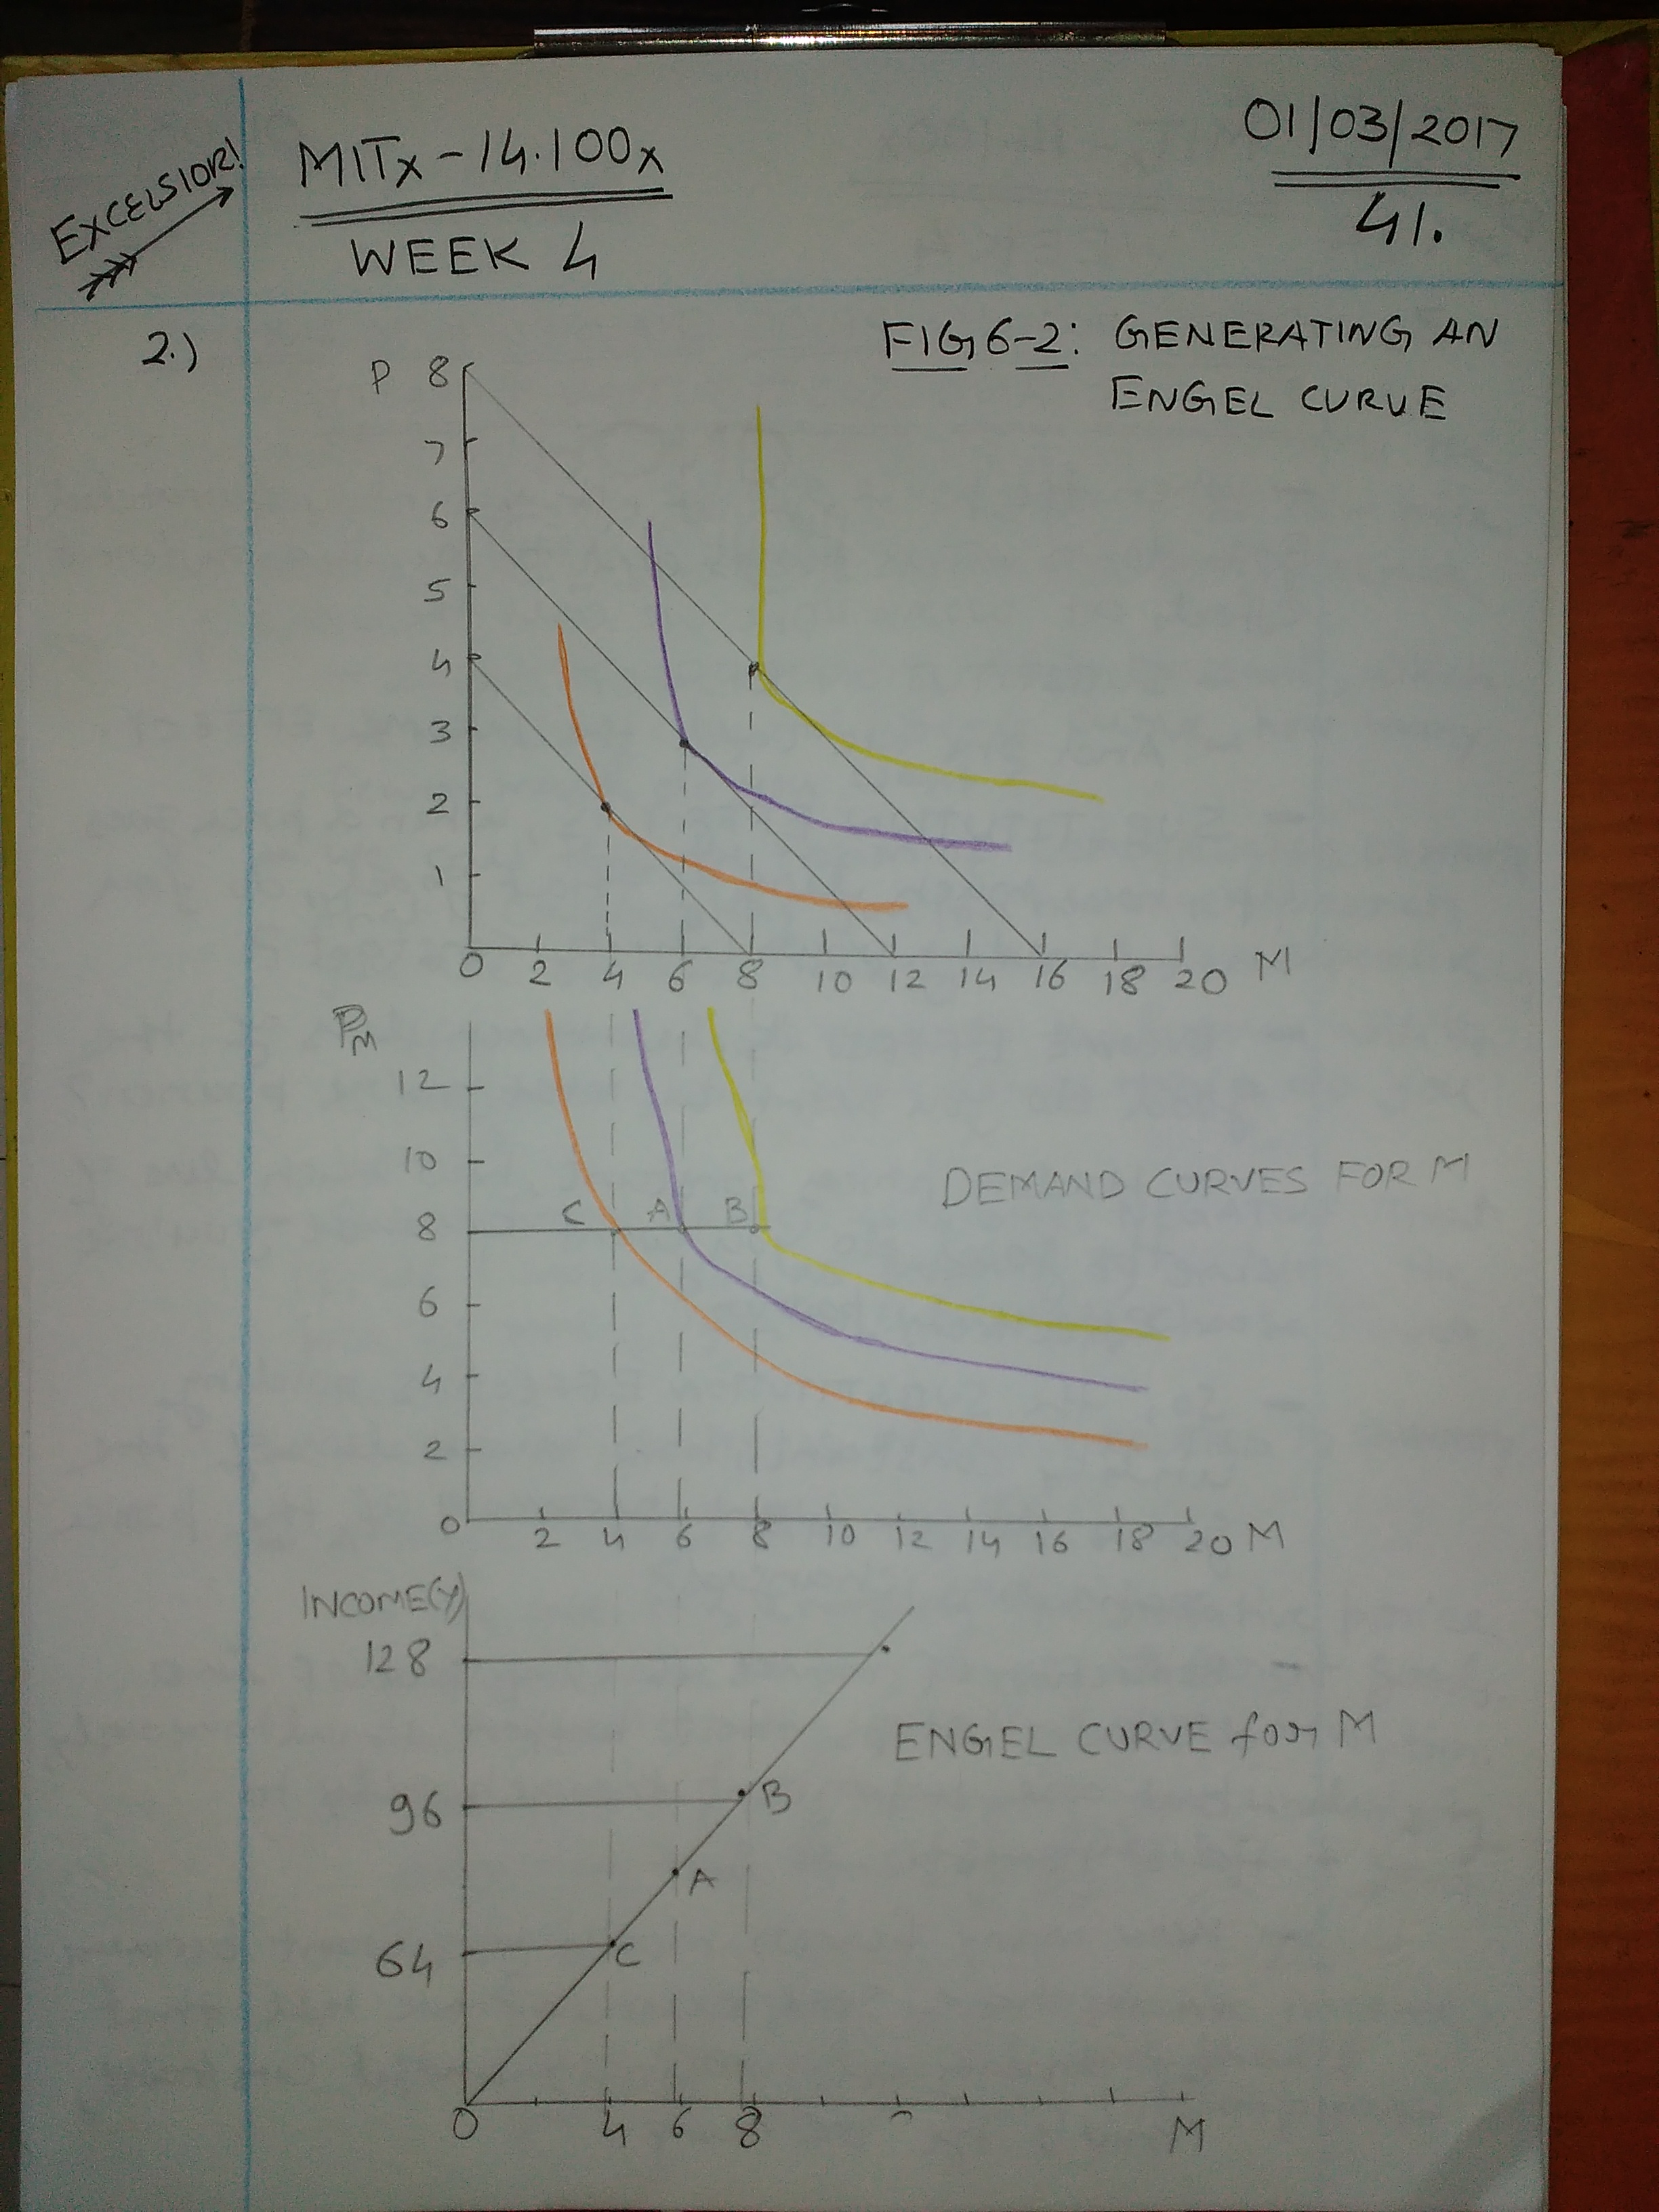 EXCELSIOR!
MITx - 14.100x
WEEK 4
01/03/2017
41.
2.)
FIG 6-2: GENERATING AN
ENGEL CURVE
P 8
7
6
5
4
3
2
1
0 2 4 6 8 10 12 14 16 18 20 M
PM
12
10
C A B
8
DEMAND CURVES FOR M
6
4
2
0 2 4 6 8 10 12 14 16 18 20 M
INCOME(Y)
128
ENGEL CURVE for M
96
B
A
64
C
0 4 6 8 M